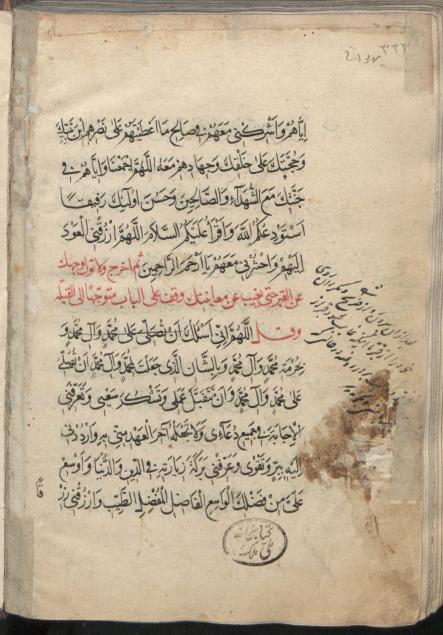 ٣٣٣
اياهم واشركني معهم في صالح ما اعطيتهم على نصرهم ابن نبيك
وحجتك على خلقك وجهادهم معه اللهم اجمعنا واياهم في
جنتك مع الشهداء والصالحين وحسن اولئك رفيقا
استودعكم الله واقرأ عليكم السلام اللهم ارزقني العود
اليهم واحشرني معهم يا ارحم الراحمين ثم اخرج ولا تول وجهك
عن القبر حتى يغيب عن معاينتك وقف على الباب متوجها الى القبلة
وقل اللهم اني اسئلك ان تصلي على محمد وآل محمد و
بحرمة محمد وآل محمد وبالشان الذي جعلت لمحمد وآل محمد ان تصلي
على محمد وآل محمد وان تتقبل عملي وتشكر سعيي وتعرفني
الاجابة في جميع دعاءي ولا تجعله آخر العهد مني به وارددني
اليه ببر وتقوى وعرفني بركة زيارته في الدين والدنيا واوسع
علي من فضلك الواسع الفاضل المفضل الطيب وارزقني رز
قا
كتابخانه
ملي ملك